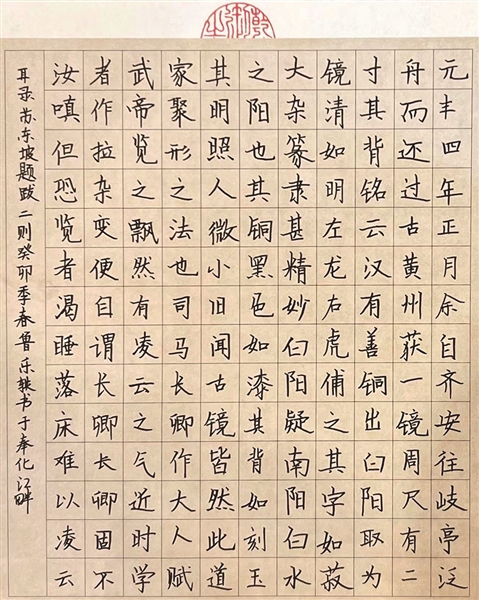 元丰四年正月余自齐安往岐亭泛
舟而还过古黄州获一镜周尺有二
寸其背铭云汉有善铜出白阳取为
镜清如明左龙右虎俌之其字如菽
大杂篆隶甚精妙白阳疑南阳白水
之阳也其铜黑色如漆其背如刻玉
其明照人微小旧闻古镜皆然此道
家聚形之法也司马长卿作大人赋
武帝览之飘然有凌云之气近时学
者作拉杂变便自谓长卿长卿固不
汝嗔但恐览者渴睡落床难以凌云
耳录苏东坡题跋二则癸卯季春鲁乐轶书于奉化江畔